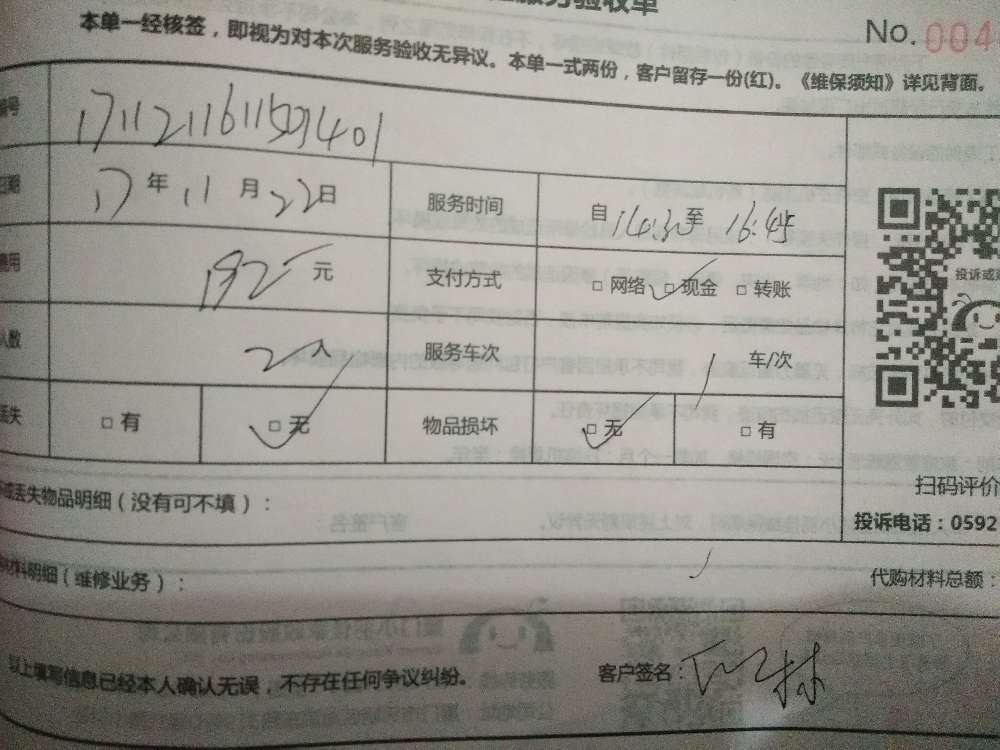 服务验收单
本单一经核签，即视为对本次服务验收无异议。本单一式两份，客户留存一份(红)。《维保须知》详见背面。
No. 004
编号 171121161159401
日期 17 年 11 月 22 日 服务时间 自 14:30 至 16:45
费用 元 支付方式 □ 网络 □ 现金 □ 转账
人数 2 人 服务车次 1 车/次
丢失 □ 有 □ 无 物品损坏 □ 无 □ 有
投诉或
扫码评价
投诉电话：0592
丢失物品明细（没有可不填）：
材料明细（维修业务）： 代购材料总额：
以上填写信息已经本人确认无误，不存在任何争议纠纷。 客户签名：